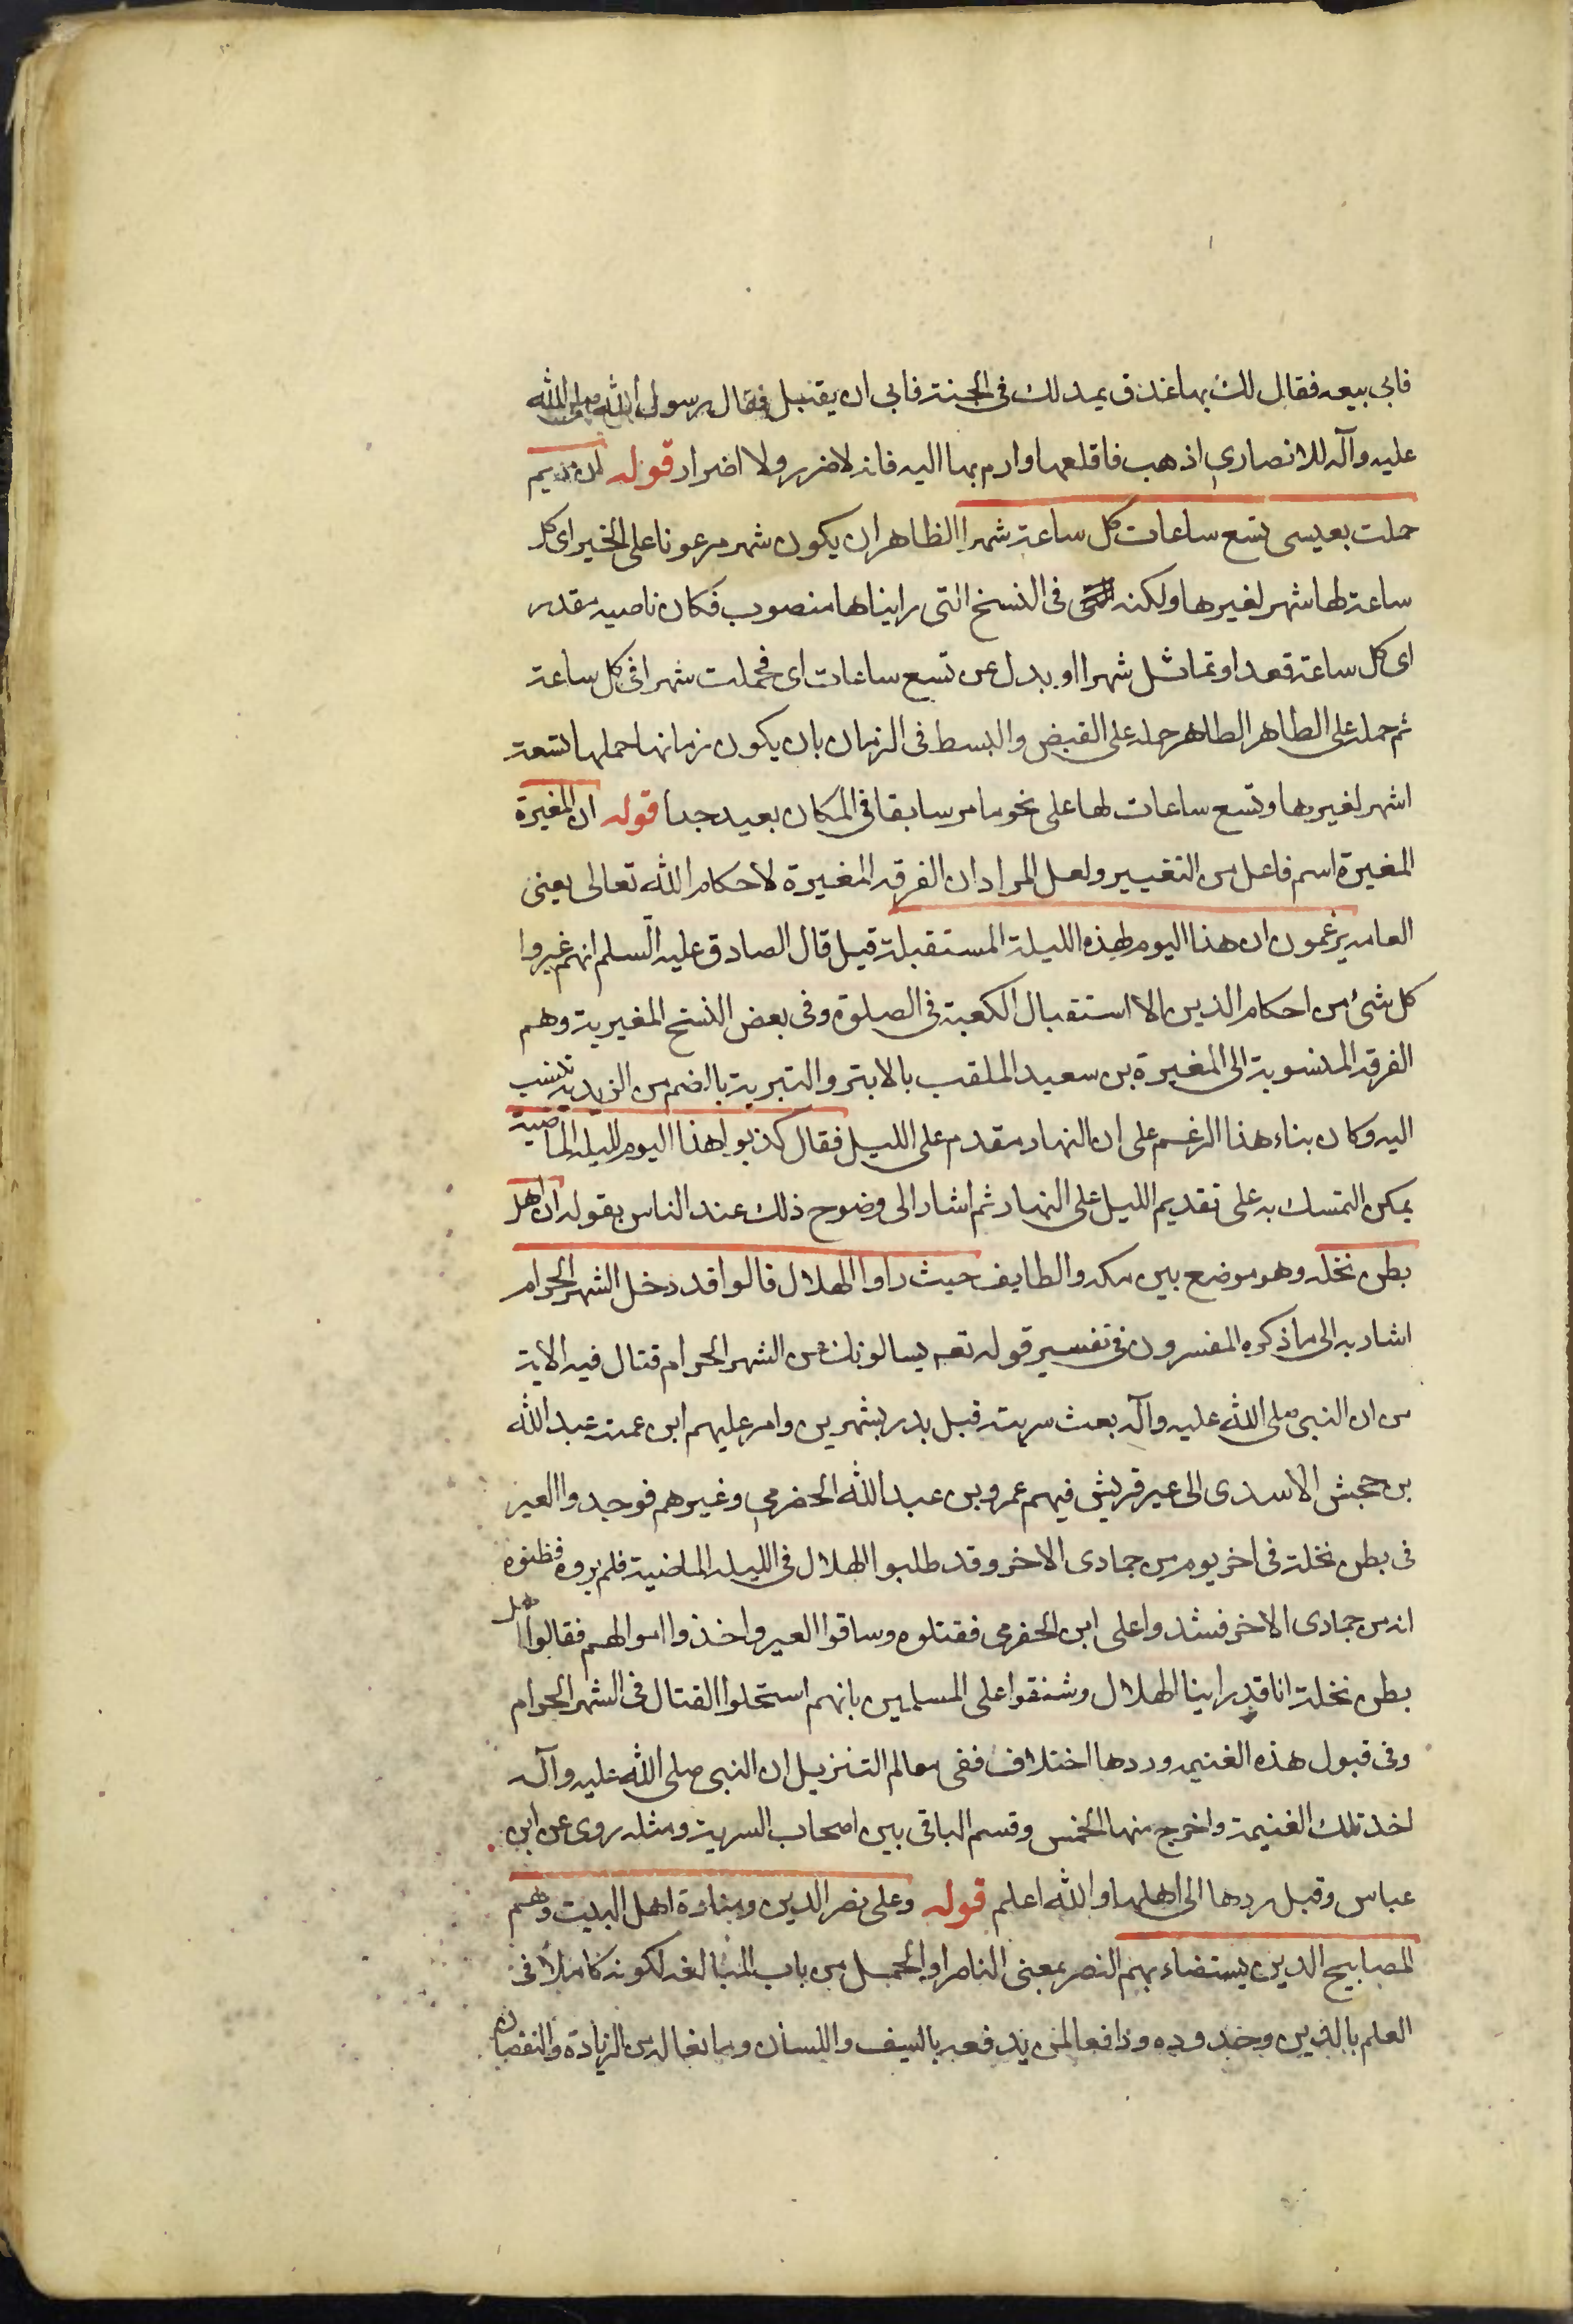 فابى بيعه فقال لك بها عذق يمد لك فى الجنة فابى ان يقبل فقال رسول الله صلى الله
عليه وآله للانصارى اذهب فاقلعها وارم بها اليه فانه لا ضرر ولا اضرار قوله ان مريم
حملت بعيسى تسع ساعات كل ساعة شهرا الظاهر ان يكون شهر مرفوعا على الخبر اى كل
ساعة لها شهر لغيرها ولكنه فى النسخ التى رايناها منصوب فكان ناصبه مقدر
اى كل ساعة تعد او تماثل شهرا او بدل عن تسع ساعات اى فحملت شهرا فى كل ساعة
ثم حمله على الظاهر الظاهر حمله على القبض والبسط فى الزمان بان يكون زمانها حملها تسعة
اشهر لغيرها وتسع ساعات لها على نحو ما مر سابقا فى المكان بعيد جدا قوله ان المغيرة
المغيرة اسم فاعل من التغيير ولعل المراد ان الفرقه المغيرة لاحكام الله تعالى يعنى
العامه يزعمون ان هذا اليوم لهذه الليلة المستقبلة قيل قال الصادق عليه السلم انهم غيروا
كل شئ من احكام الدين الا استقبال الكعبة فى الصلوة وفى بعض النسخ المغيرية وهم
الفرقه المنسوبة الى المغيرة بن سعيد الملقب بالابتر والتبرية بالضم من الزيدية تنسب
اليه وكان بناء هذا الزعم على ان النهار مقدم على الليل فقال كذبوا هذا اليوم لليله الماضية
يمكن التمسك به على تقديم الليل على النهار ثم اشار الى وضوح ذلك عند الناس بقوله ان اهل
بطن نخله وهو موضع بين مكه والطايف حيث راوا الهلال قالوا قد دخل الشهر الحرام
اشار به الى ما ذكره المفسرون فى تفسير قوله تعه يسالونك عن الشهر الحرام قتال فيه الاية
من ان النبى صلى الله عليه وآله بعث سرية قبل بدر بشهرين وامر عليهم ابن عمته عبد الله
بن جحش الاسدى الى عير قريش فيهم عمرو بن عبد الله الحضرمى وغيرهم فوجدوا العير
فى بطن نخلة فى اخر يوم من جمادى الاخر وقد طلبوا الهلال فى الليله الماضية فلم يروه فظنوه
انه من جمادى الاخر فشدوا على ابن الحضرمى فقتلوه وساقوا العير واخذوا اموالهم فقالوا اهل
بطن نخلة انا قد راينا الهلال وشنقوا على المسلمين بانهم استحلوا القتال فى الشهر الحرام
وفى قبول هذه الغنيمه وردها اختلاف ففى معالم التنزيل ان النبى صلى الله عليه وآله
اخذ تلك الغنيمة واخرج منها الخمس وقسم الباقى بين اصحاب السرية ومثله روى عن ابن
عباس وقيل ردها الى اهلها والله اعلم قوله وعلى نصر الدين ومنارة اهل البيت وهم
المصابيح الذين يستضاء بهم النصر بمعنى الناصر او الحمل من باب المبالغه لكونه كاملا فى
العلم بالدين وحدوده ودافعا لمن يدفعه بالسيف واللسان ومانعا له من الزيادة والنقصان